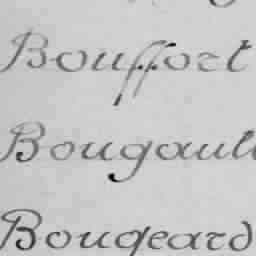 Bouffort
Bougault
Bougeard